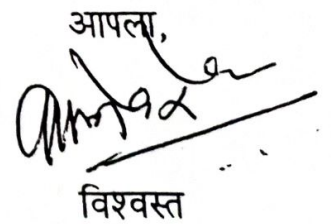 आपला,
विश्वस्त